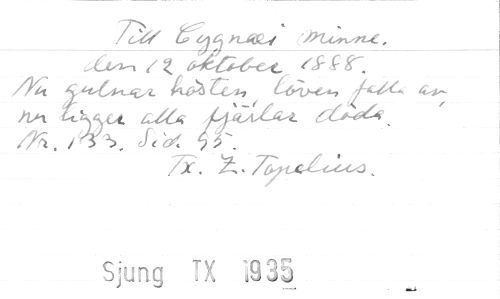 Till Cygnæi minne.
den 12 oktober 1888.
Nu gulnar hösten, löven falla av,
nu ligger alla fjärlar döda.
Nr. 133. Sid. 95.
Tx. Z. Topelius.
Sjung TX 1935